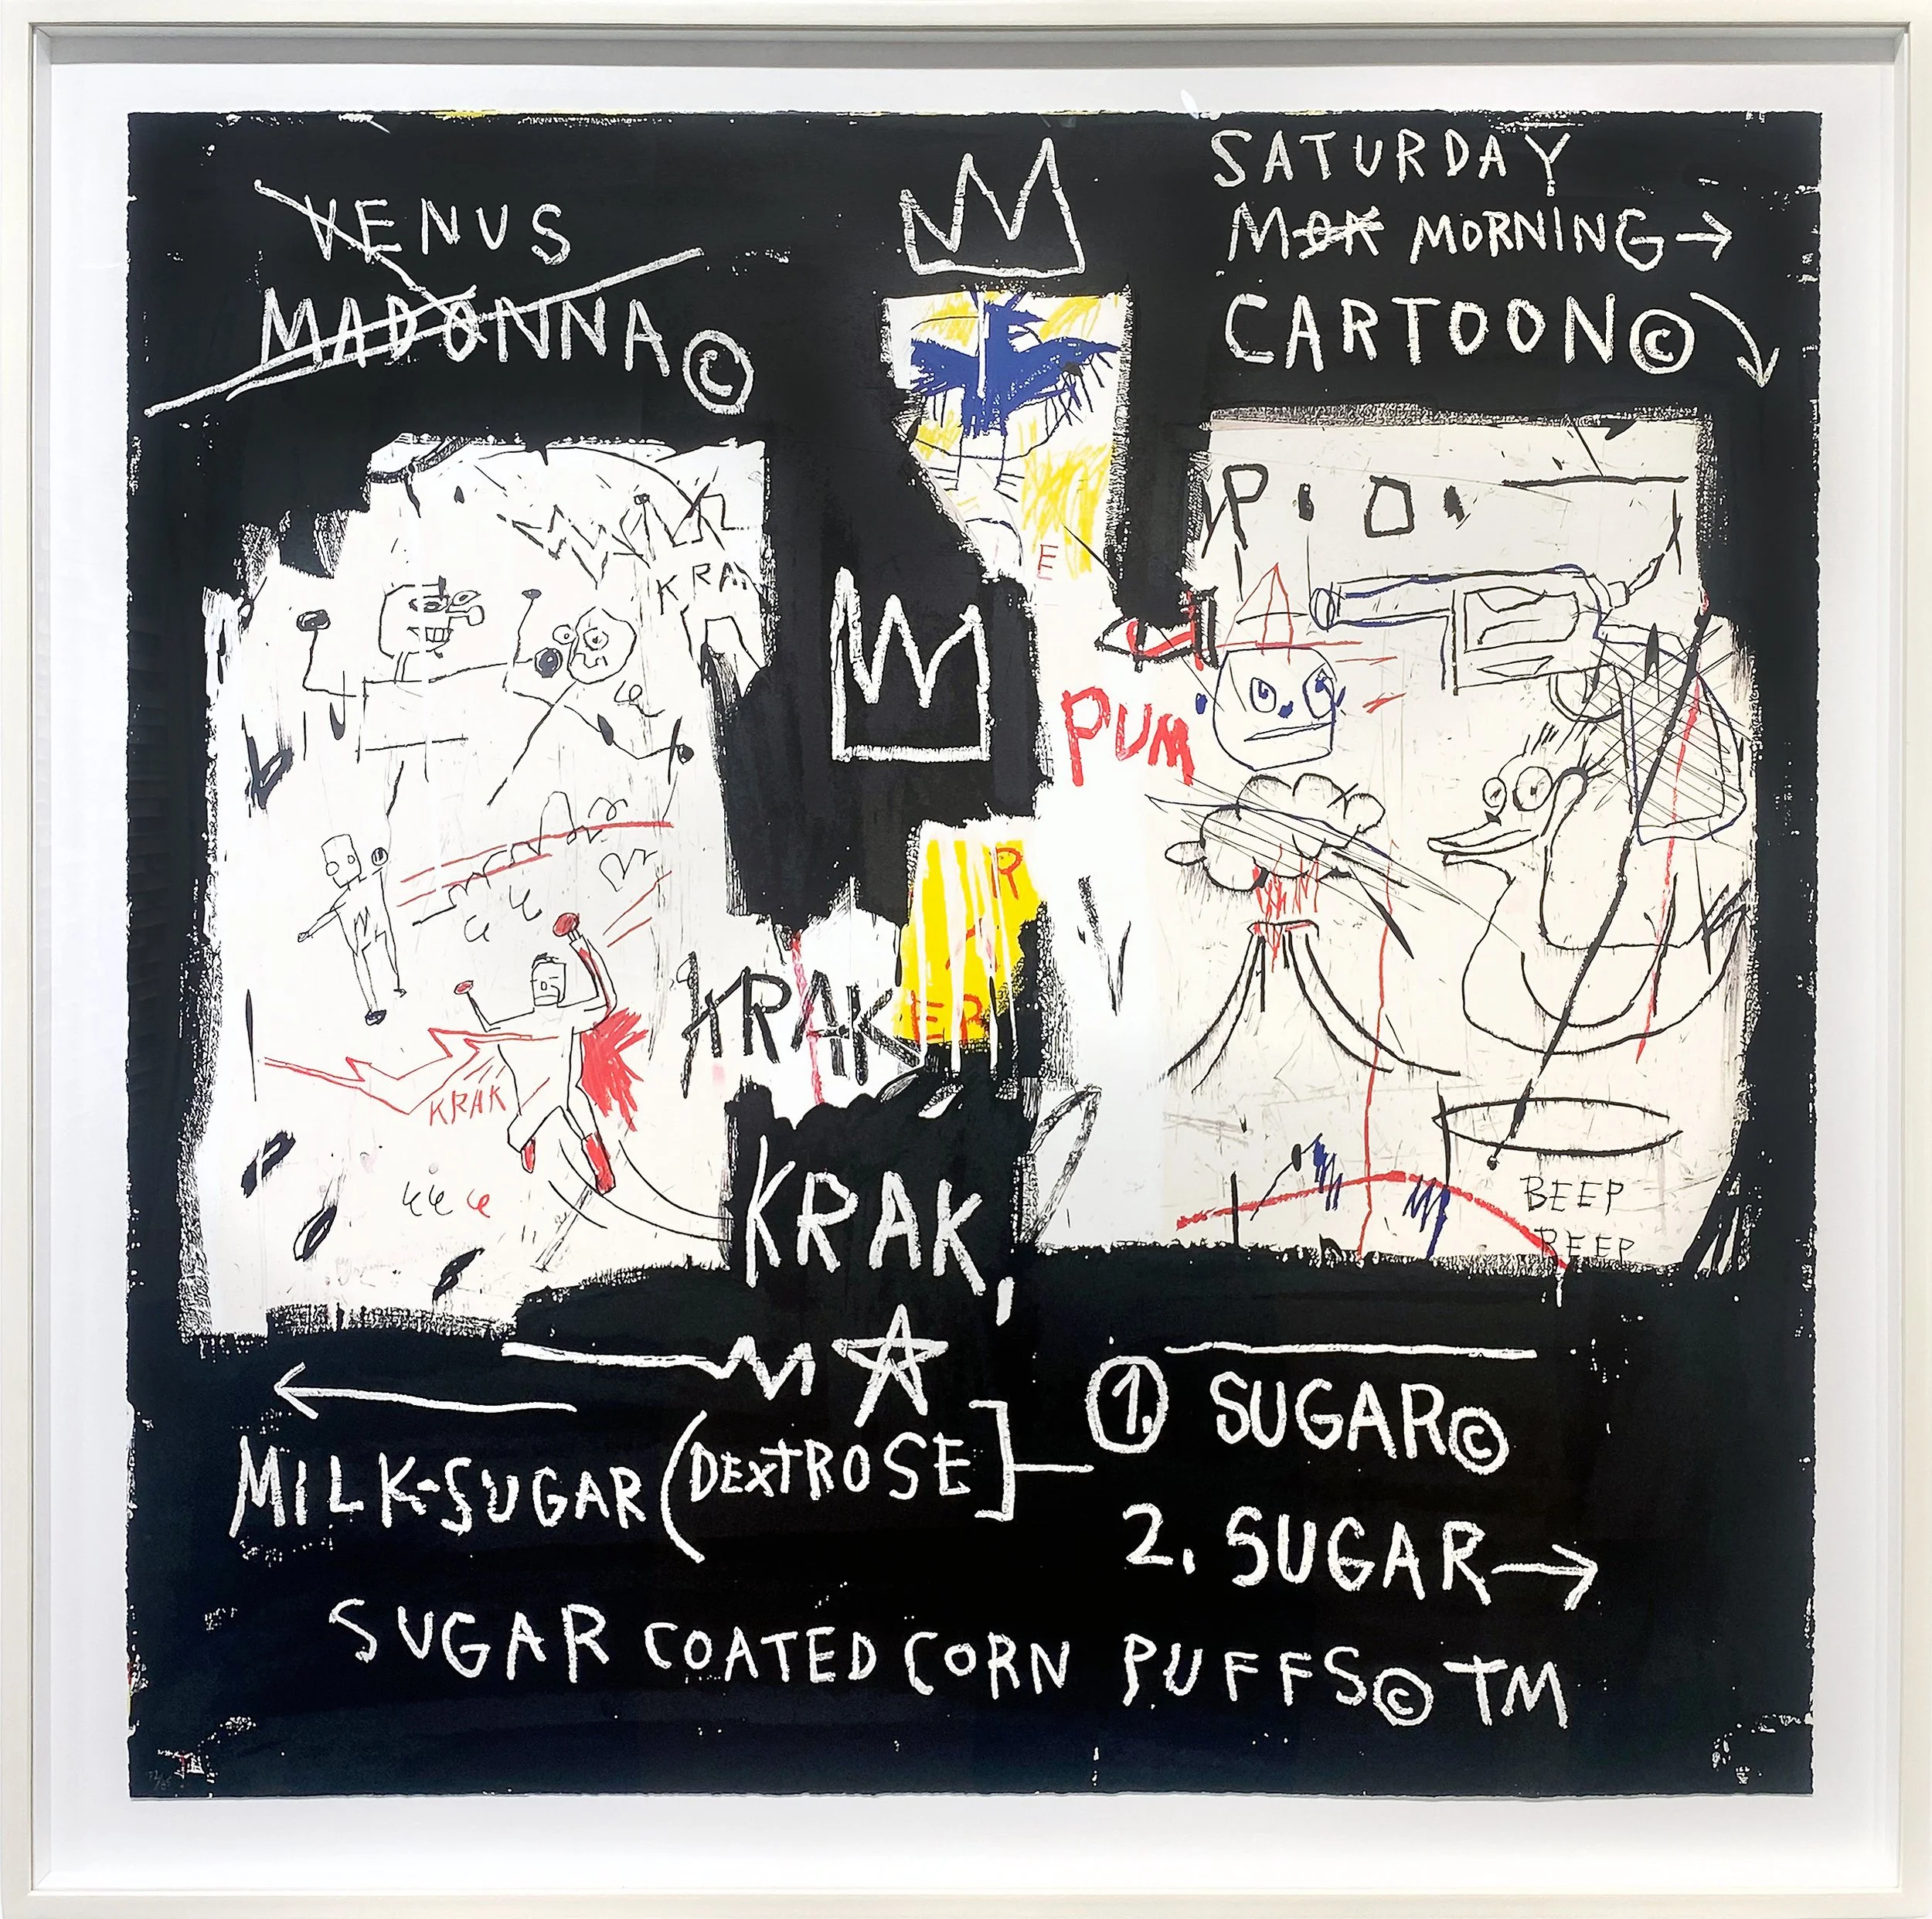 VENUS
MADONNA ©
SATURDAY
MOR MORNING →
CARTOON ©
P. O.
KRAK
E
PUM
R
KRAK
ER
KRAK
BEEP
BEEP
KRAK,
MILK-SUGAR (DEXTROSE]
1. SUGAR ©
2. SUGAR →
SUGAR COATED CORN PUFFS © TM